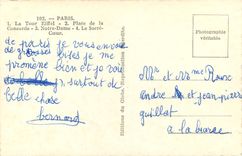 102. - PARIS.
1. La Tour Eiffel - 2. Place de la
Concorde - 3. Notre-Dame - 4. Le Sacré-
Cœur.
de paris je vous envoie
de grosses bises je me
promène bien et je vois
de belle surtout de
belle chose
bernard
Photographie
véritable
Mrs et Mme Rouc
andre et jean pierre
guillot
a la barse